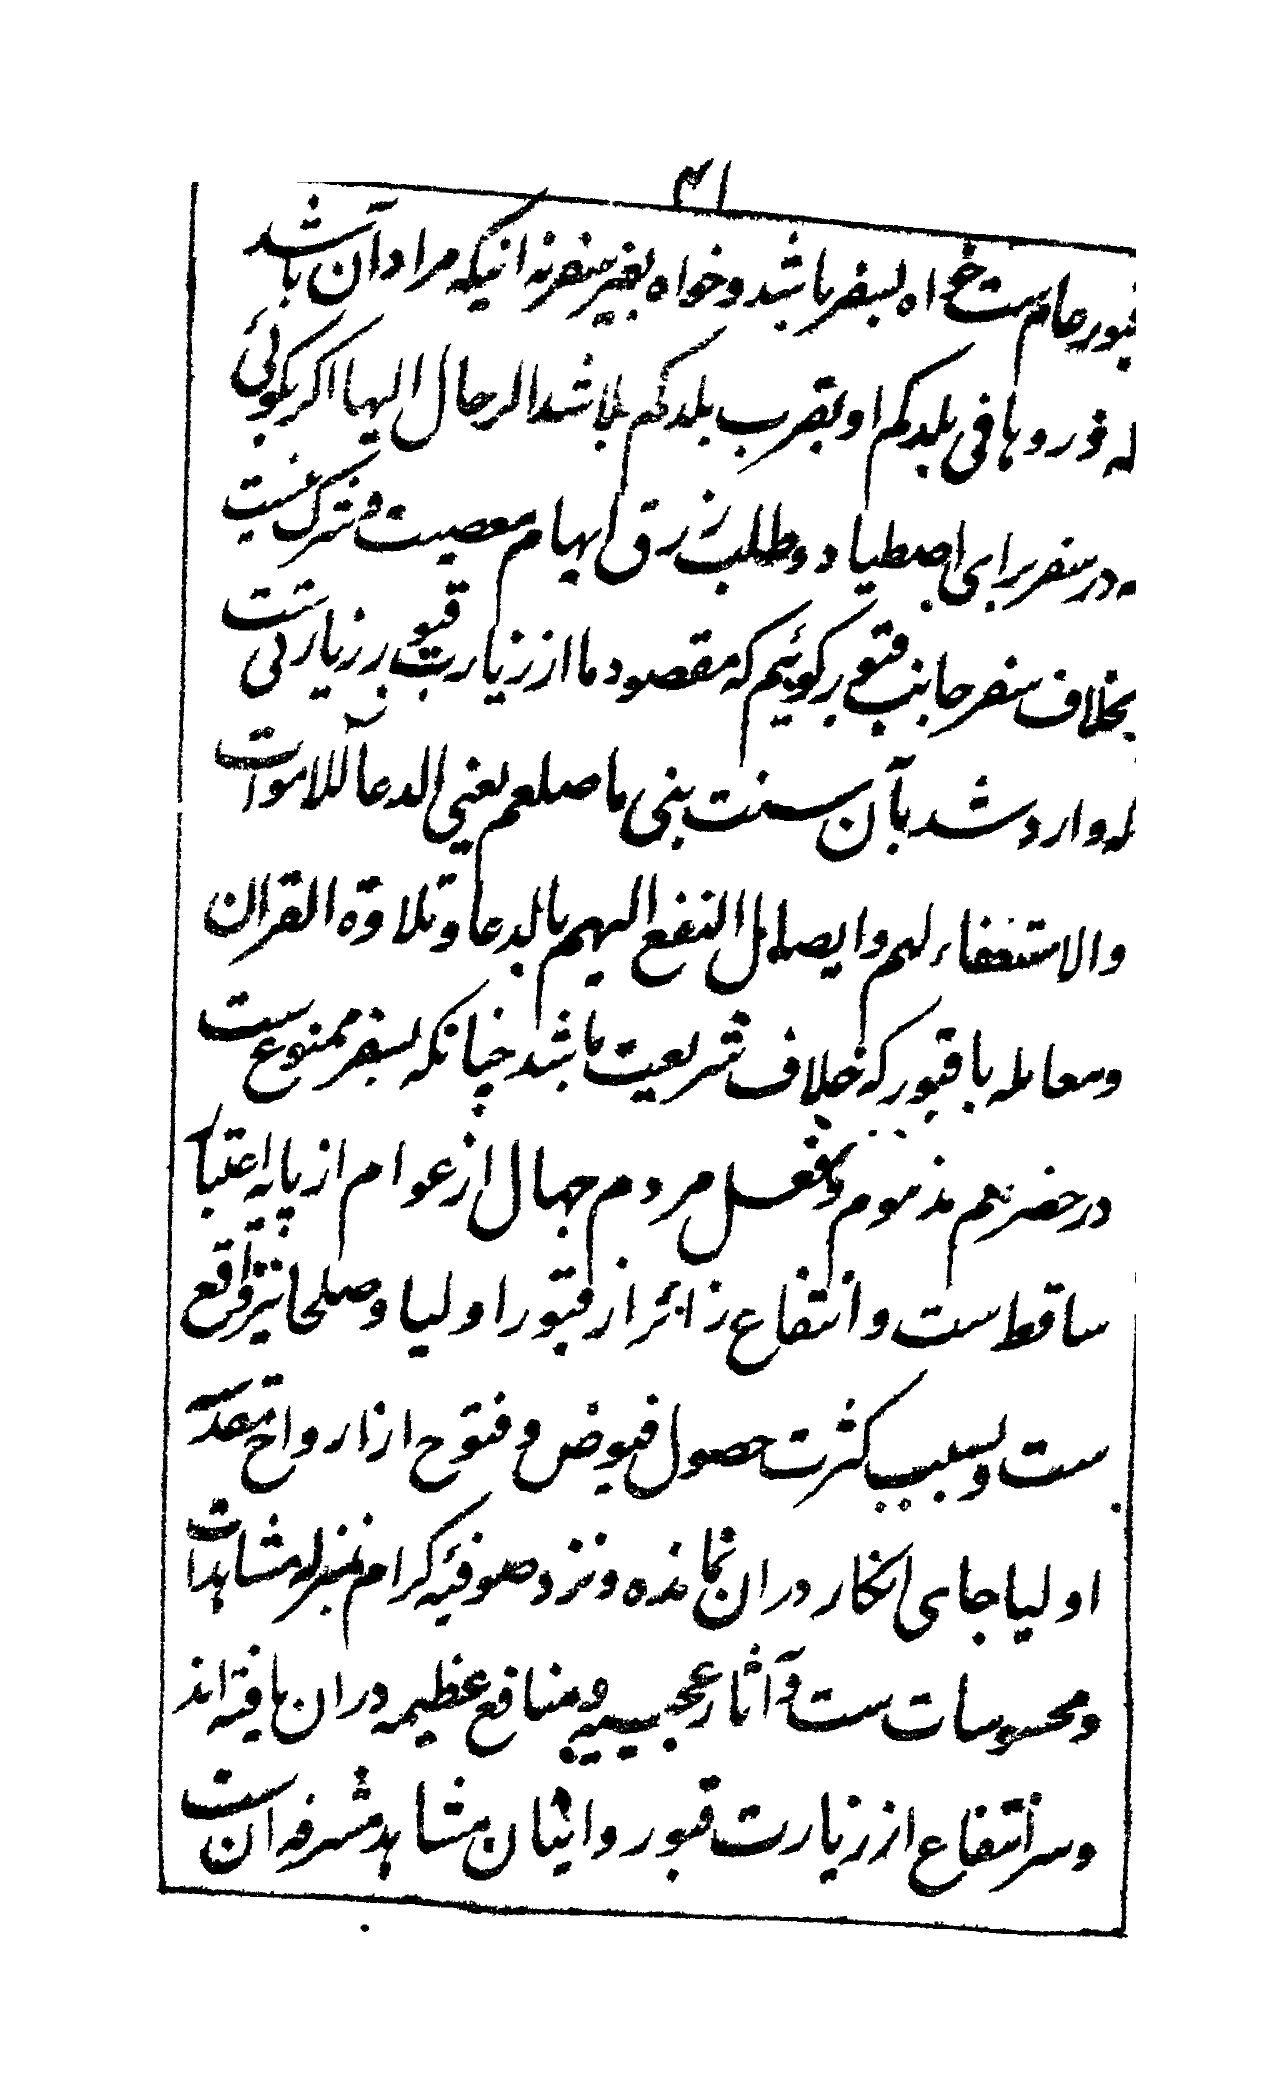 ۳۱
قبور عام ست خواه بسفر باشد و خواه بغیر سفر نه اینکه مراد آن باشد
که زوروها فی بلدکم او بقرب بلدکم بلا شد الرحال الیها اگر بگوئی
که در سفر برای اصطیاد و طلب رزق ایهام معصیت و شرک نیست
بخلاف سفر جانب قبور گوئیم که مقصود ما از زیارت قبور زیارتی ست
که وارد شد بآن سنت نبی ما صلعم یعنی الدعآ للاموات
والاستغفاء لهم وایصال النفع الیهم بالدعا وتلاوة القرآن
و معامله با قبور که خلاف شریعت باشد چنانکه بسفر ممنوع ست
در حضر هم مذموم و فعل مردم جهال از عوام از پایه اعتبار
ساقط ست و انتفاع زائر از قبور اولیا و صلحا نیز واقع
ست و بسبب کثرت حصول فیوض و فتوح از ارواح مقدسه
اولیا جای انکار دران نمانده و نزد صوفیه کرام بمنزله مشاهدات
و محسوسات ست و آثار عجیبه و منافع عظیمه دران یافته اند
و سر انتفاع از زیارت قبور و اتیان مشاهد مشرفه آن ست